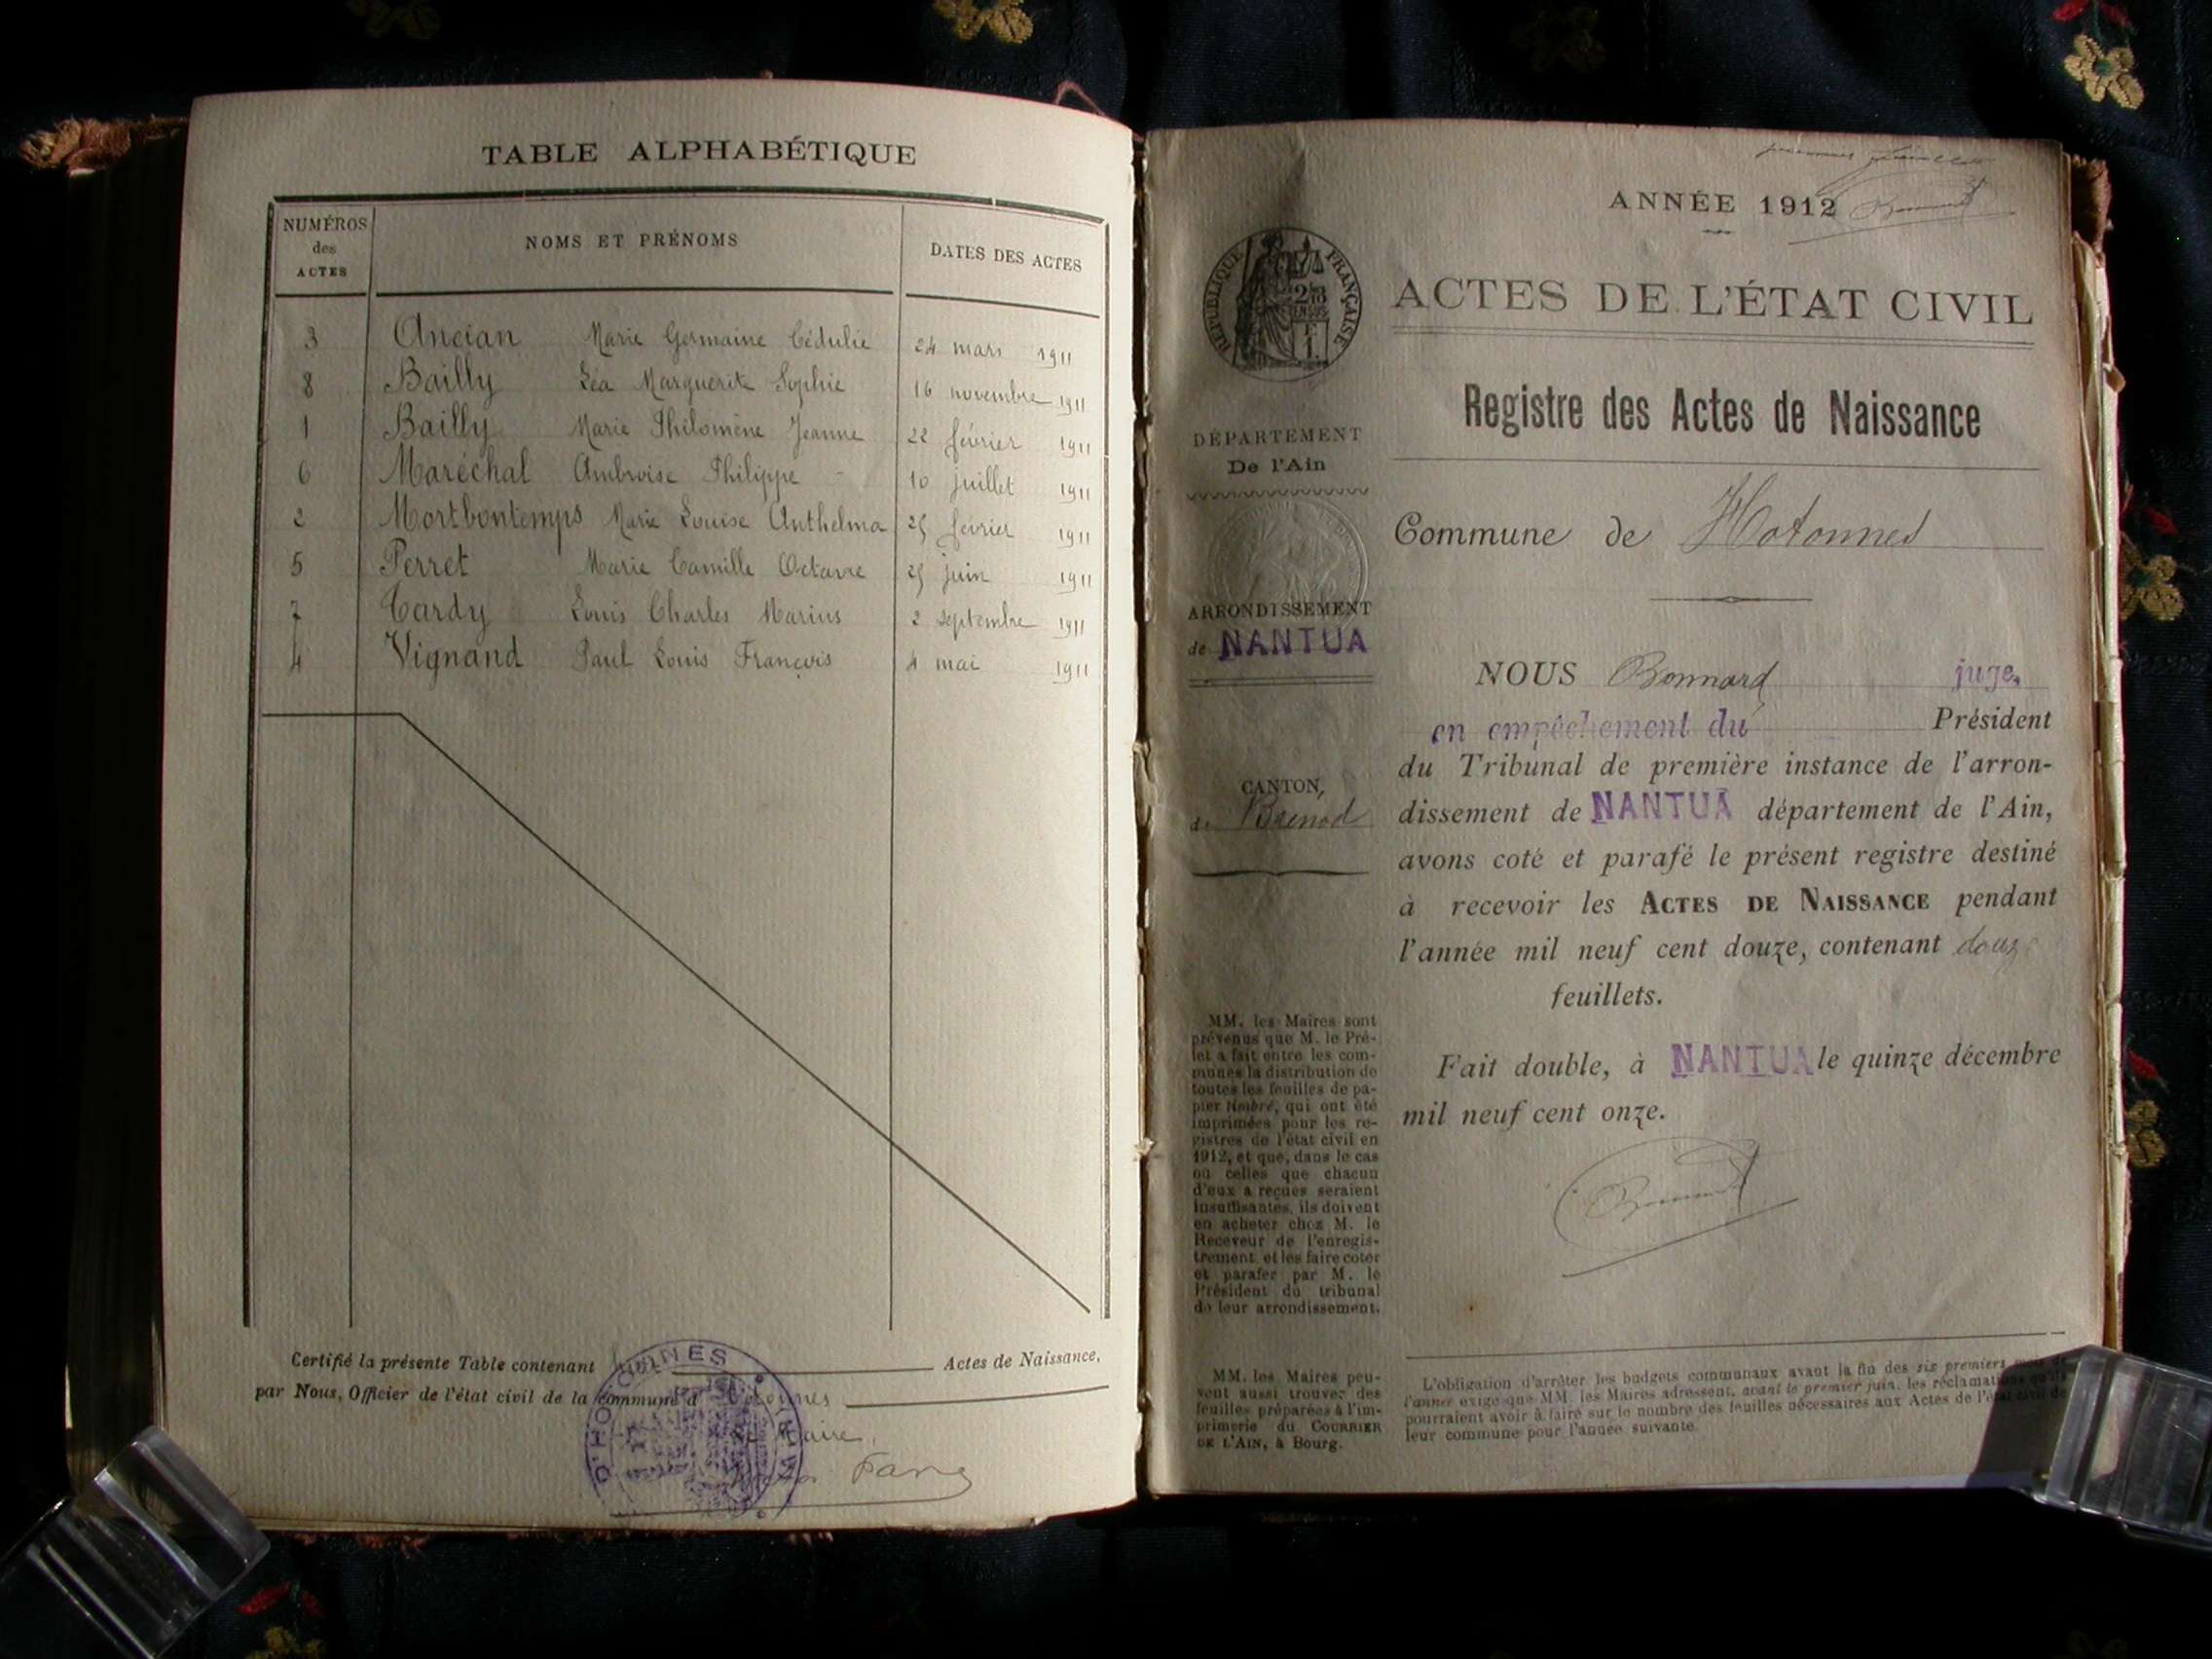 TABLE ALPHABÉTIQUE
NUMÉROS des ACTES
NOMS ET PRÉNOMS
DATES DES ACTES
3 Ancian Marie Germaine Cédulie 24 mars 1911
8 Bailly Léa Marguerite Sophie 16 novembre 1911
1 Bailly Marie Philomène Jeanne 22 février 1911
6 Maréchal Ambroise Philippe 10 juillet 1911
2 Mortbontemps Marie Louise Anthelma 25 février 1911
5 Perret Marie Camille Octavie 25 juin 1911
7 Tardy Louis Charles Marius 2 septembre 1911
4 Vignand Paul Louis François 4 mai 1911
Certifié la présente Table contenant Actes de Naissance,
par Nous, Officier de l'état civil de la commune d'Hotonnes
Maire,
ANNÉE 1912
RÉPUBLIQUE FRANÇAISE
ACTES DE L'ÉTAT CIVIL
Registre des Actes de Naissance
DÉPARTEMENT
De l'Ain
Commune de Hotonnes
ARRONDISSEMENT
de NANTUA
CANTON
de Brénod
NOUS Bonnard juge,
en empêchement du Président
du Tribunal de première instance de l'arron-
dissement de NANTUA département de l'Ain,
avons coté et parafé le présent registre destiné
à recevoir les ACTES DE NAISSANCE pendant
l'année mil neuf cent douze, contenant douze
feuillets.
Fait double, à NANTUA le quinze décembre
mil neuf cent onze.
MM. les Maires sont
prévenus que M. le Pré-
fet a fait entre les com-
munes la distribution de
toutes les feuilles de pa-
pier timbré, qui ont été
imprimées pour les re-
gistres de l'état civil en
1912, et que, dans le cas
où celles que chacun
d'eux a reçues seraient
insuffisantes, ils doivent
en acheter chez M. le
Receveur de l'enregis-
trement et les faire coter
et parafer par M. le
Président du tribunal
de leur arrondissement.
MM. les Maires peu-
vent aussi trouver des
feuilles préparées à l'im-
primerie du COURRIER
DE L'AIN, à Bourg.
L'obligation d'arrêter les budgets communaux avant la fin des six premiers mois de
l'année exige que MM. les Maires adressent, avant le premier juin, les réclamations qu'ils
pourraient avoir à faire sur le nombre des feuilles nécessaires aux Actes de l'état civil de
leur commune pour l'année suivante.